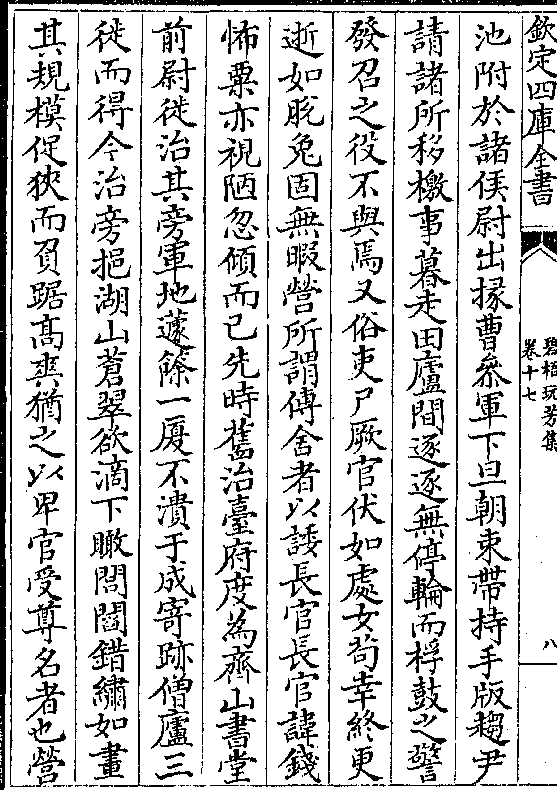 欽定四庫全書
碧梧玩芳集
卷十七
八
池附於諸侯尉出掾曹叅軍下旦朝束帶持手版趨尹
請諸所移檄事暮走田廬間逐逐無停輪而桴鼓之警
發召之役不與焉又俗吏尸厥官伏如處女茍幸終更
逝如脫兔固無暇營所謂傳舍者以諉長官長官諱錢
怖粟亦視陋忽傾而已先時舊治臺府度為齊山書堂
前尉徙治其旁軍地蘧篨一厦不潰于成寄跡僧廬三
徙而得今治旁挹湖山蒼翠欲滴下瞰閭閻錯繡如畫
其規模促狹而負踞髙爽猶之以卑官受尊名者也營